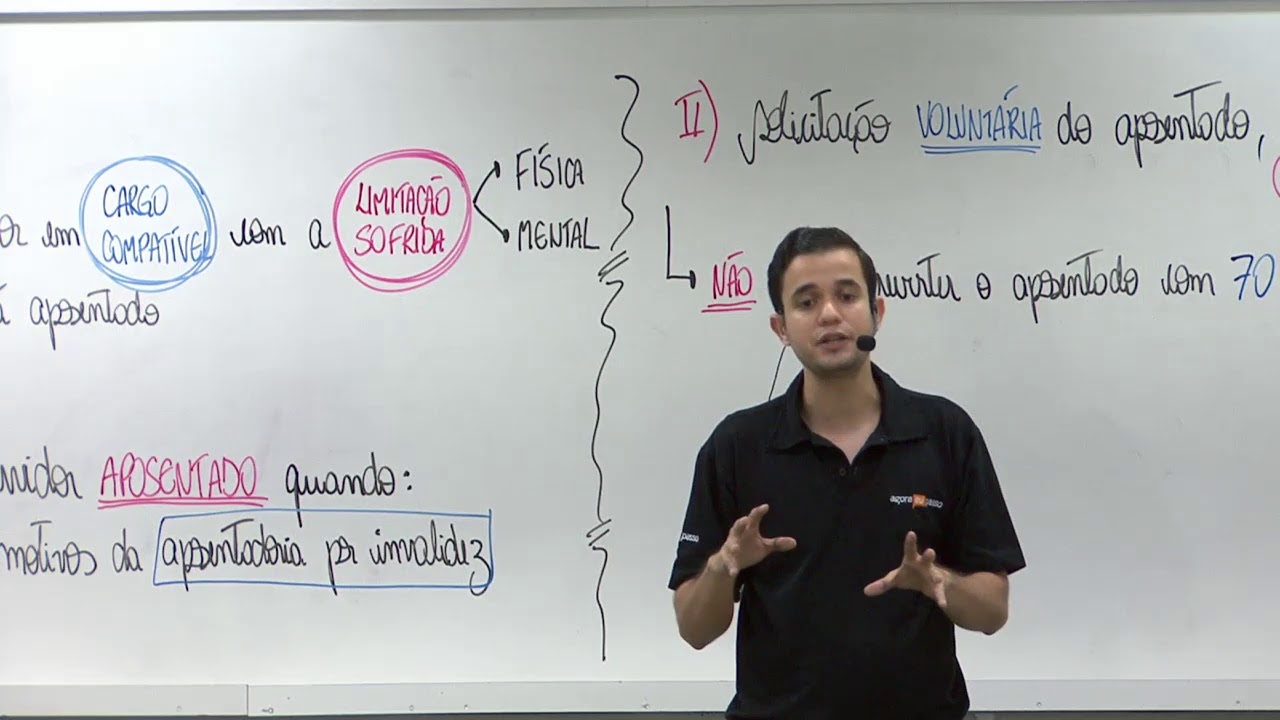 or em CARGO COMPATÍVEL com a LIMITAÇÃO SOFRIDA
FÍSICA
MENTAL
á aposentado
vidor APOSENTADO quando:
motivos da aposentadoria por invalidez
II) Solicitação VOLUNTÁRIA do aposentado,
NÃO
o aposentado com 70
agora eu passo
passo